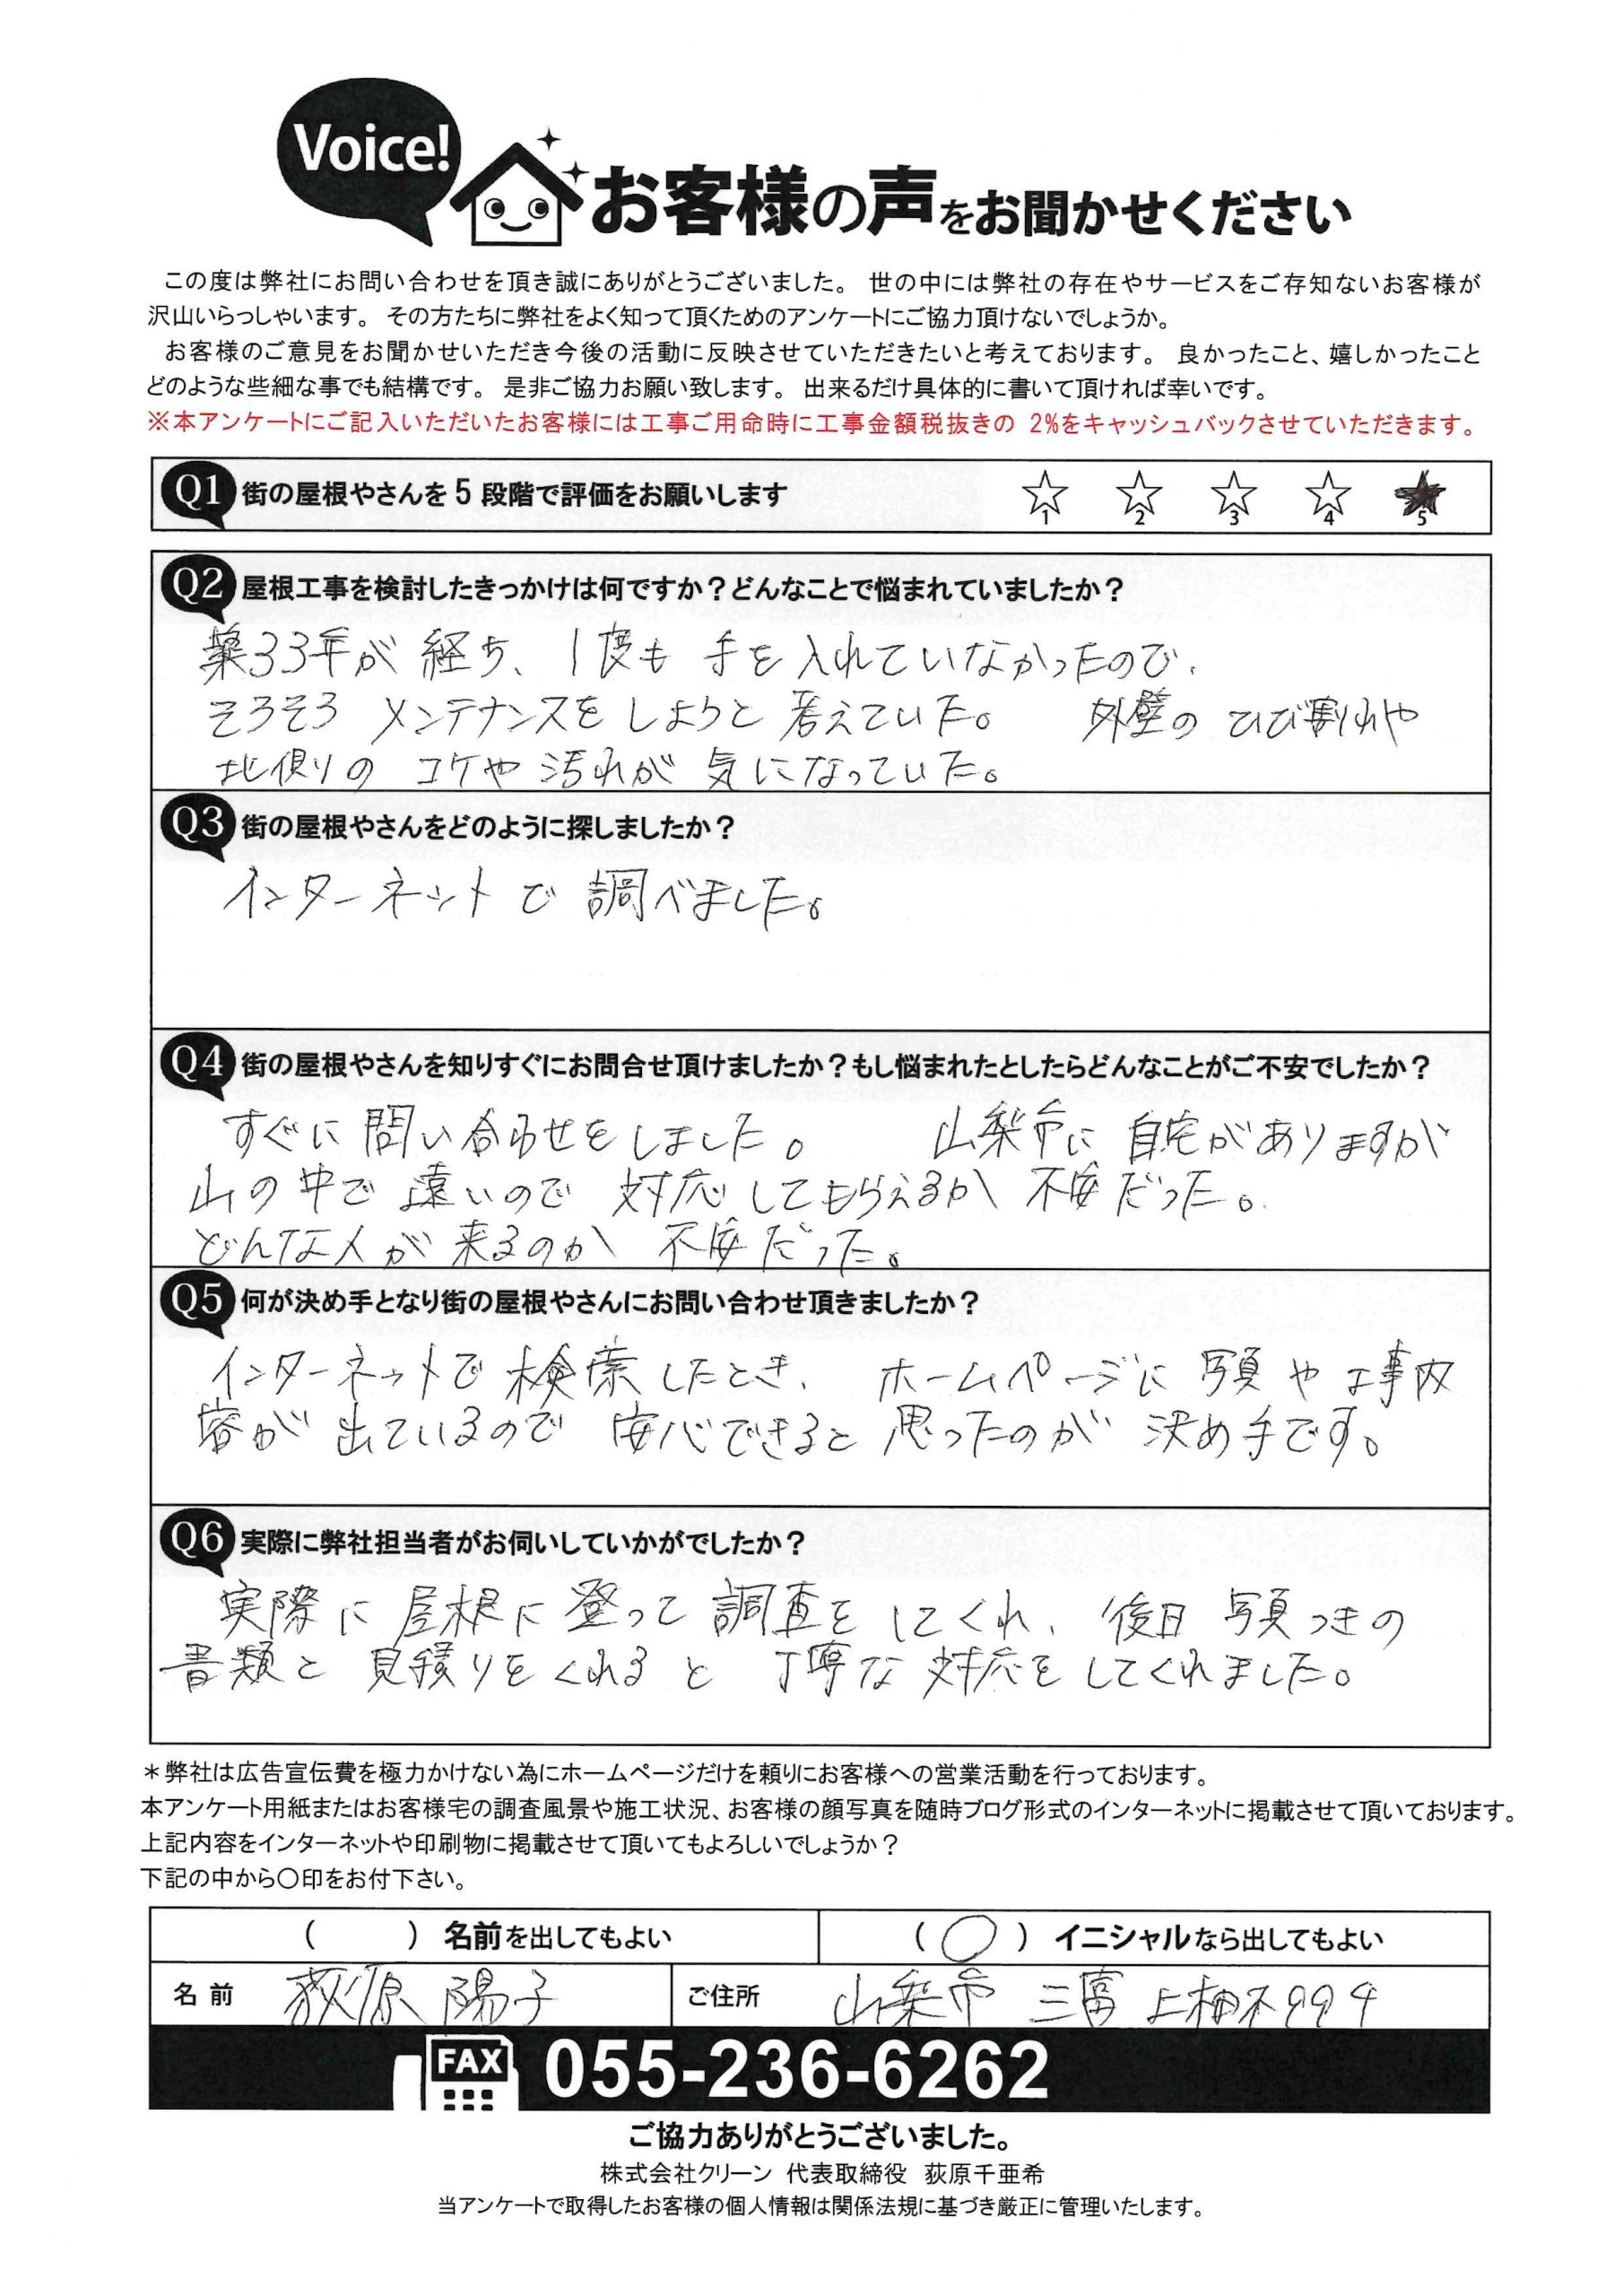 Voice!
お客様の声をお聞かせください
この度は弊社にお問い合わせを頂き誠にありがとうございました。 世の中には弊社の存在やサービスをご存知ないお客様が
沢山いらっしゃいます。 その方たちに弊社をよく知って頂くためのアンケートにご協力頂けないでしょうか。
お客様のご意見をお聞かせいただき今後の活動に反映させていただきたいと考えております。 良かったこと、嬉しかったこと
どのような些細な事でも結構です。 是非ご協力お願い致します。 出来るだけ具体的に書いて頂ければ幸いです。
※本アンケートにご記入いただいたお客様には工事ご用命時に工事金額税抜きの 2%をキャッシュバックさせていただきます。
Q1 街の屋根やさんを 5 段階で評価をお願いします ☆1 ☆2 ☆3 ☆4 ★5
Q2 屋根工事を検討したきっかけは何ですか？どんなことで悩まれていましたか？
築33年が 経ち、1度も 手を入れていなかったので、
そろそろ メンテナンスを しようと 考えていた。 外壁の ひび割れや
北側の コケや 汚れが 気になっていた。
Q3 街の屋根やさんをどのように探しましたか？
インターネットで 調べました。
Q4 街の屋根やさんを知りすぐにお問合せ頂けましたか？もし悩まれたとしたらどんなことがご不安でしたか？
すぐに 問い合わせをしました。 山梨市に 自宅がありますが
山の中で 遠いので 対応してもらえるか 不安だった。
どんな人が 来るのか 不安だった。
Q5 何が決め手となり街の屋根やさんにお問い合わせ頂きましたか？
インターネットで 検索したとき、 ホームページに 写真や 工事内
容が 出ているので 安心できると 思ったのが 決め手です。
Q6 実際に弊社担当者がお伺いしていかがでしたか？
実際に 屋根に 登って 調査を してくれ、 後日 写真つきの
書類と 見積りをくれると 丁寧な 対応を してくれました。
＊弊社は広告宣伝費を極力かけない為にホームページだけを頼りにお客様への営業活動を行っております。
本アンケート用紙またはお客様宅の調査風景や施工状況、お客様の顔写真を随時ブログ形式のインターネットに掲載させて頂いております。
上記内容をインターネットや印刷物に掲載させて頂いてもよろしいでしょうか？
下記の中から○印をお付下さい。
（ ）名前を出してもよい （○）イニシャルなら出してもよい
名 前 荻原 陽子 ご住所 山梨市 三富 上柚木994
FAX 055-236-6262
ご協力ありがとうございました。
株式会社クリーン 代表取締役 荻原千亜希
当アンケートで取得したお客様の個人情報は関係法規に基づき厳正に管理いたします。